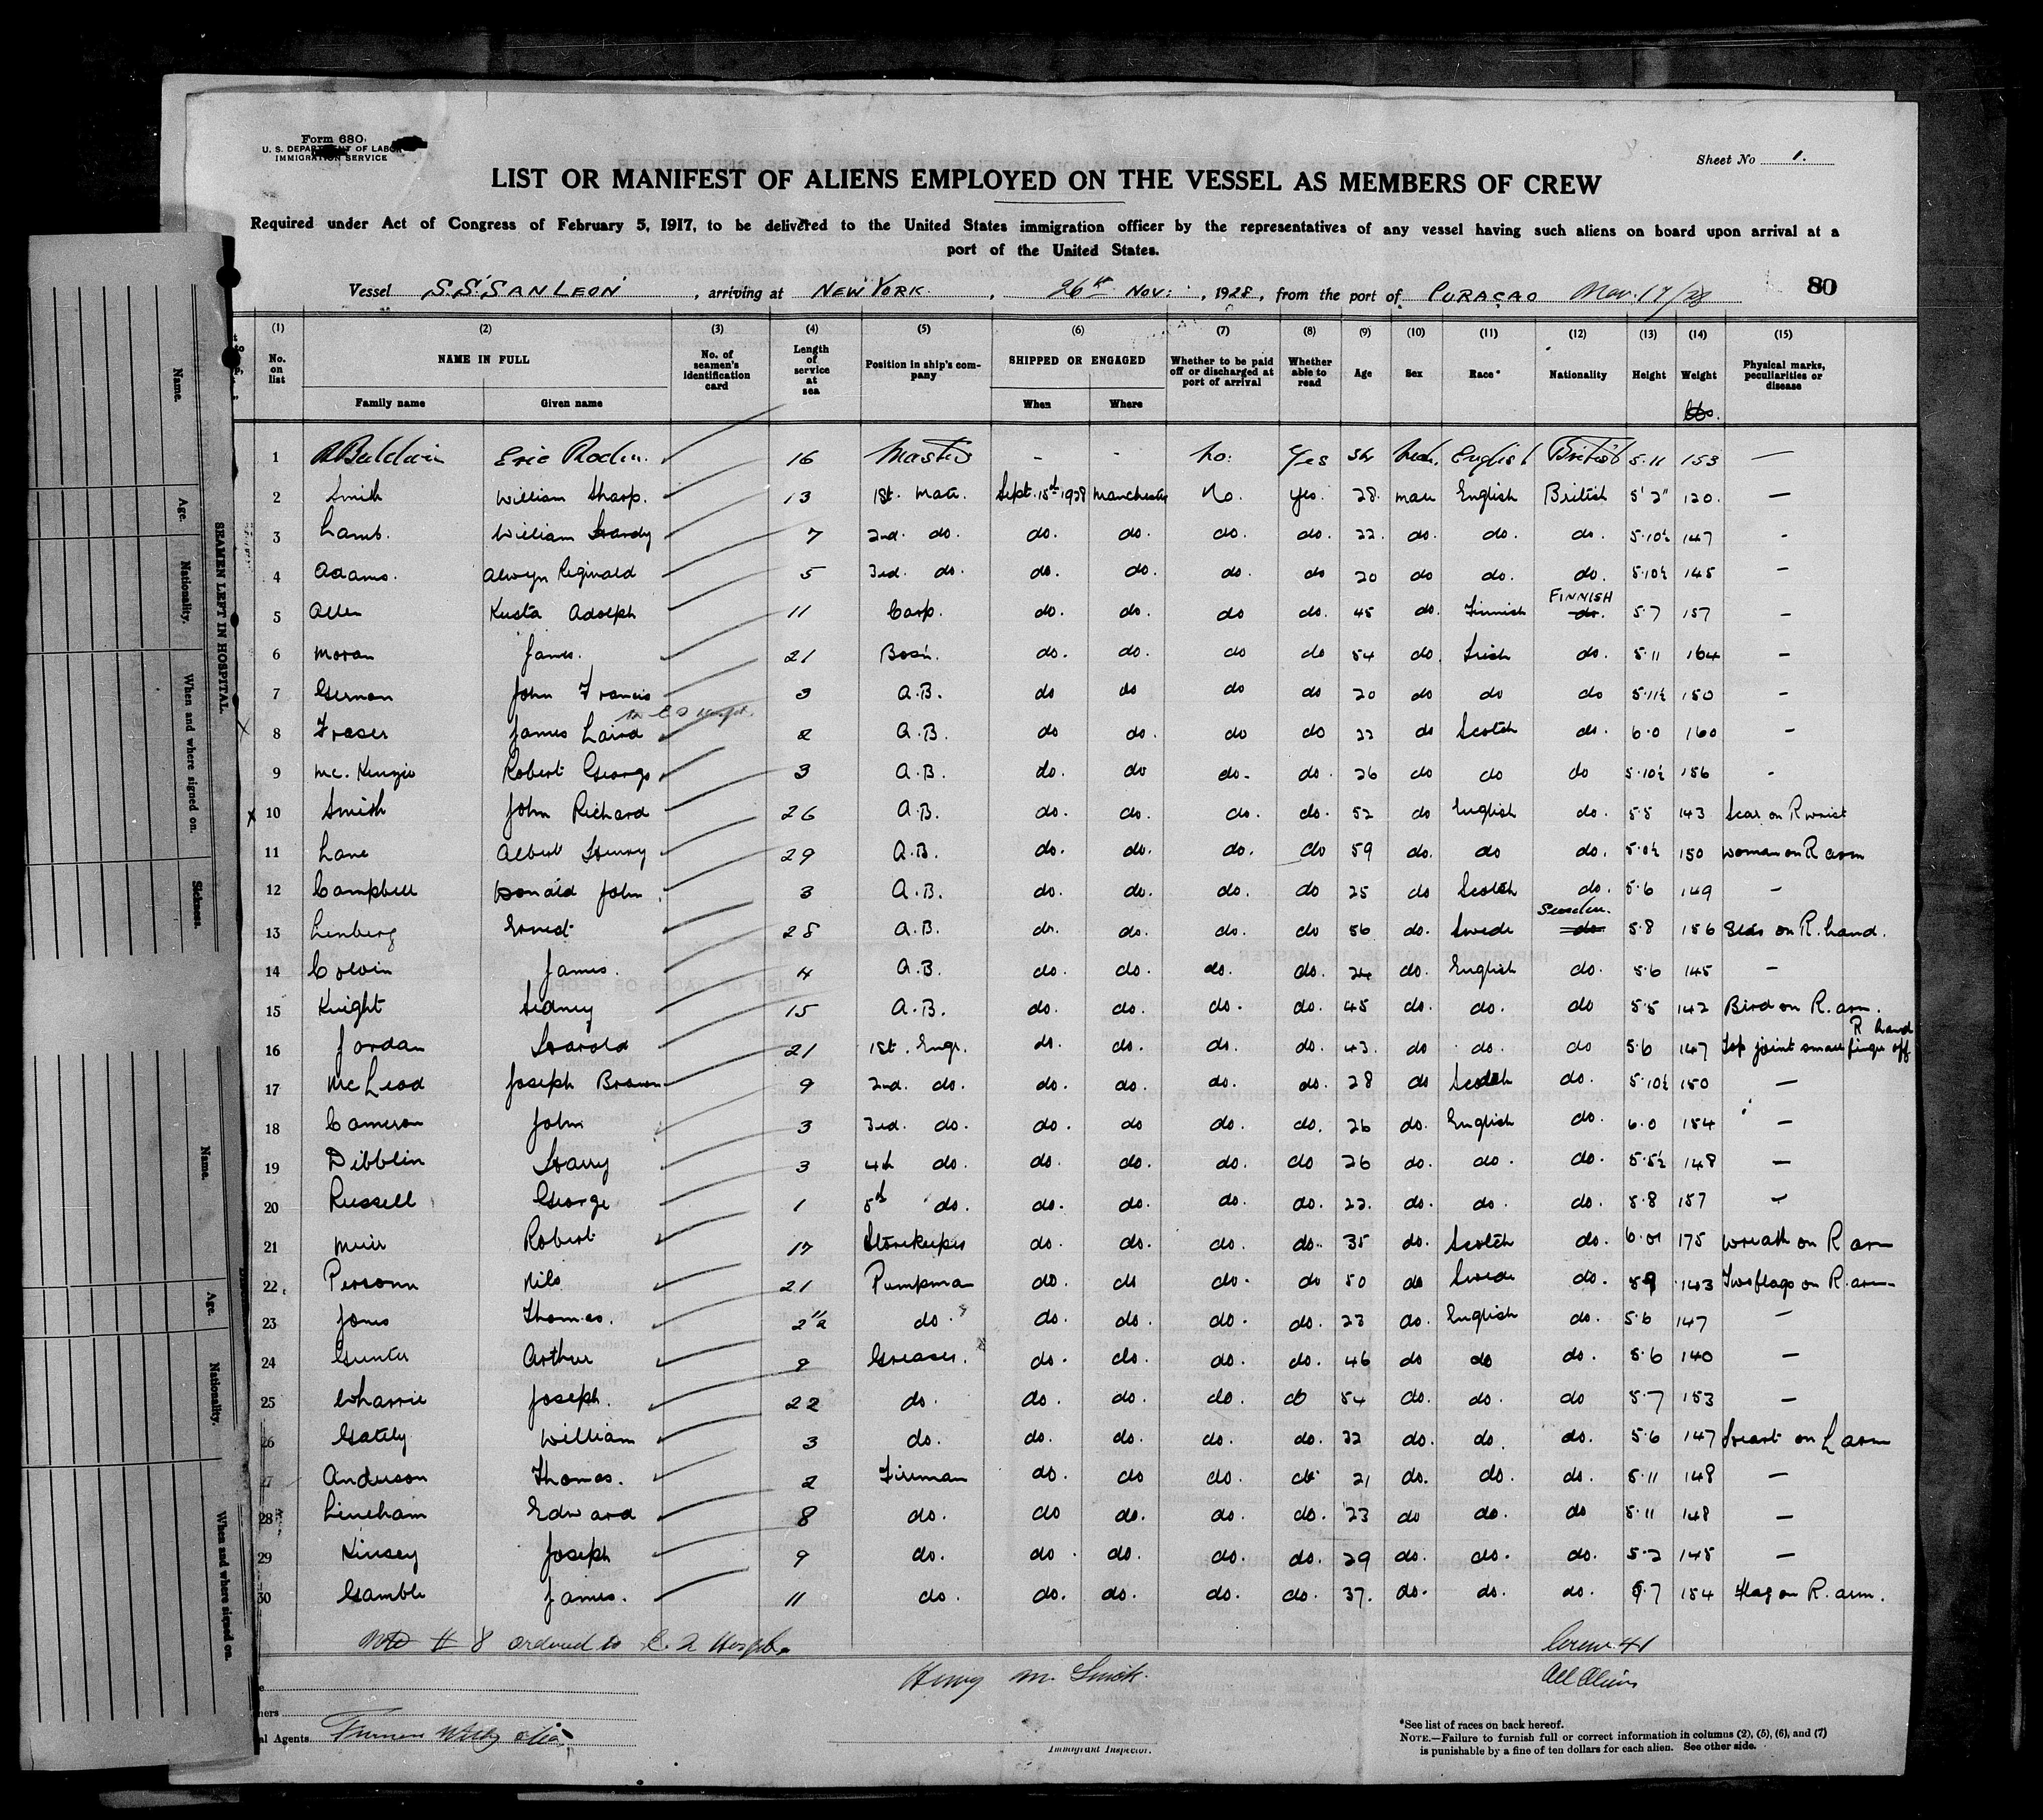 Form 680.
U. S. DEPARTMENT OF LABOR
IMMIGRATION SERVICE
Sheet No 1.
LIST OR MANIFEST OF ALIENS EMPLOYED ON THE VESSEL AS MEMBERS OF CREW
Required under Act of Congress of February 5, 1917, to be delivered to the United States immigration officer by the representatives of any vessel having such aliens on board upon arrival at a
port of the United States.
Vessel S.S. "SAN LEON", arriving at NEW YORK, 26th Nov: , 1928, from the port of CURAÇAO Nov. 17/28 80
(1) (2) (3) (4) (5) (6) (7) (8) (9) (10) (11) (12) (13) (14) (15)
No. on list NAME IN FULL No. of seamen's identification card Length of service at sea Position in ship's company SHIPPED OR ENGAGED Whether to be paid off or discharged at port of arrival Whether able to read Age Sex Race* Nationality Height Weight Physical marks, peculiarities or disease
Family name Given name When Where lbs.
1 Baldwin Eric 16 Master - - No: Yes English British 5.11 153 —
2 Smith William Sharp. 13 1st. Mate. Sept. 15th 1928 Manchester No. Yes. 28. male English British 5' 2" 120. —
3 Lamb. William Hardy 7 2nd. do. do. do. do. do. 22. do. do. do. 5.10½ 147 -
4 Adams. Alwyn Reginald 5 3rd. do. do. do. do. do 20 do do. do. 5.10½ 145 —
5 Allen Kusta Adolph 11 Carp. do. do. do do. 45 do. Finnish FINNISH do. 5.7 157 —
6 Moran James. 21 Bosn. do. do. do do 54 do. Irish do. 5.11 164 —
7 Gernon John Francis 3 A.B. do do do do 20 do do do 5.11½ 150 -
8 Fraser James Laird 2 A.B. do do. do do 22 do Scotch do. 6.0 160 —
9 Mc. Kenzie Robert George 3 A.B. do. do do. do. 26 do do do 5.10½ 156 -
10 Smith John Richard 26 A.B. do. do. do. do. 52 do English do. 5.5 143 Scar on R wrist
11 Lane Albert Henry 29 A.B. do. do. do. do 59 do. do do. 5.0½ 150 woman on R arm
12 Campbell Donald John 3 A.B. do. do. do. do 25 do Scotch do. 5.6 149 —
13 Lenberg Ernest 28 A.B. do. do. do. do 56 do. Swede Sweden. do 5.8 156 Scar on R. hand.
14 Colvin James. 4 A.B. do. do. do. do. 24 do. English do. 5.6 145 —
15 Knight Sidney 15 A.B. do. do. do. do. 45 do. do. do 5.5 142 Bird on R. arm.
16 Jordan Harold 21 1st. Engr. do. do. do. do. 43. do do. do 5.6 147 Top joint small finger off R hand
17 McLeod Joseph Brown 9 2nd. do. do. do. do. do. 28 do Scotch do. 5.10½ 150 —
18 Cameron John 3 3rd. do. do. do do. do. 26 do. English do. 6.0 154 —
19 Dibblin Harry 3 4th do. do. do. do. do 26 do. do. do. 5.5½ 148 —
20 Russell George 1 5th do. do. do. do. do. 22. do. do. do. 5.8 157 —
21 Muir Robert 17 Storekeeper do. do. do. do. 35 do. Scotch do. 175 wreath on R arm
22 Persson Nils 21 Pumpman do. do do. do 50 do Swede do. 5 9 143 Two flags on R. arm
23 Jones Thomas. do. do. do. do. do. 23 do. English do. 5.6 147 —
24 Gunter Arthur 9 Greaser. do. do. do. do. 46 do do do. 5.6 140 —
25 Wharrie Joseph. 22 do. do. do. do. do 54 do. do. do 5.7 153 —
26 Gately William 3 do. do. do. do. do. 22 do. do. do. 5.6 147 Heart on L arm
27 Anderson Thomas. 2 Fireman do. do do. do 21 do. do. do. 5.11 148 —
28 Lineham Edward 8 do. do do. do. do. 23 do do. do 5.11 148 —
29 Kinsey Joseph 9 do. do. do. do. do. 29 do. do. do. 5.2 145 —
30 Gamble James. 11 do. do. do. do. do. 37. do. do. do. 5.7 154 Flag on R. arm.
# 8 ordered to Hospital
Crew 41
All Aliens
Henry M. Smith.
Immigrant Inspector.
al Agents Furness Withy
*See list of races on back hereof.
NOTE.—Failure to furnish full or correct information in columns (2), (5), (6), and (7)
is punishable by a fine of ten dollars for each alien. See other side.
SEAMEN LEFT IN HOSPITAL.
Name.
Age.
Nationality.
When and where signed on.
Sickness.
Name.
Age.
Nationality.
When and where signed on.